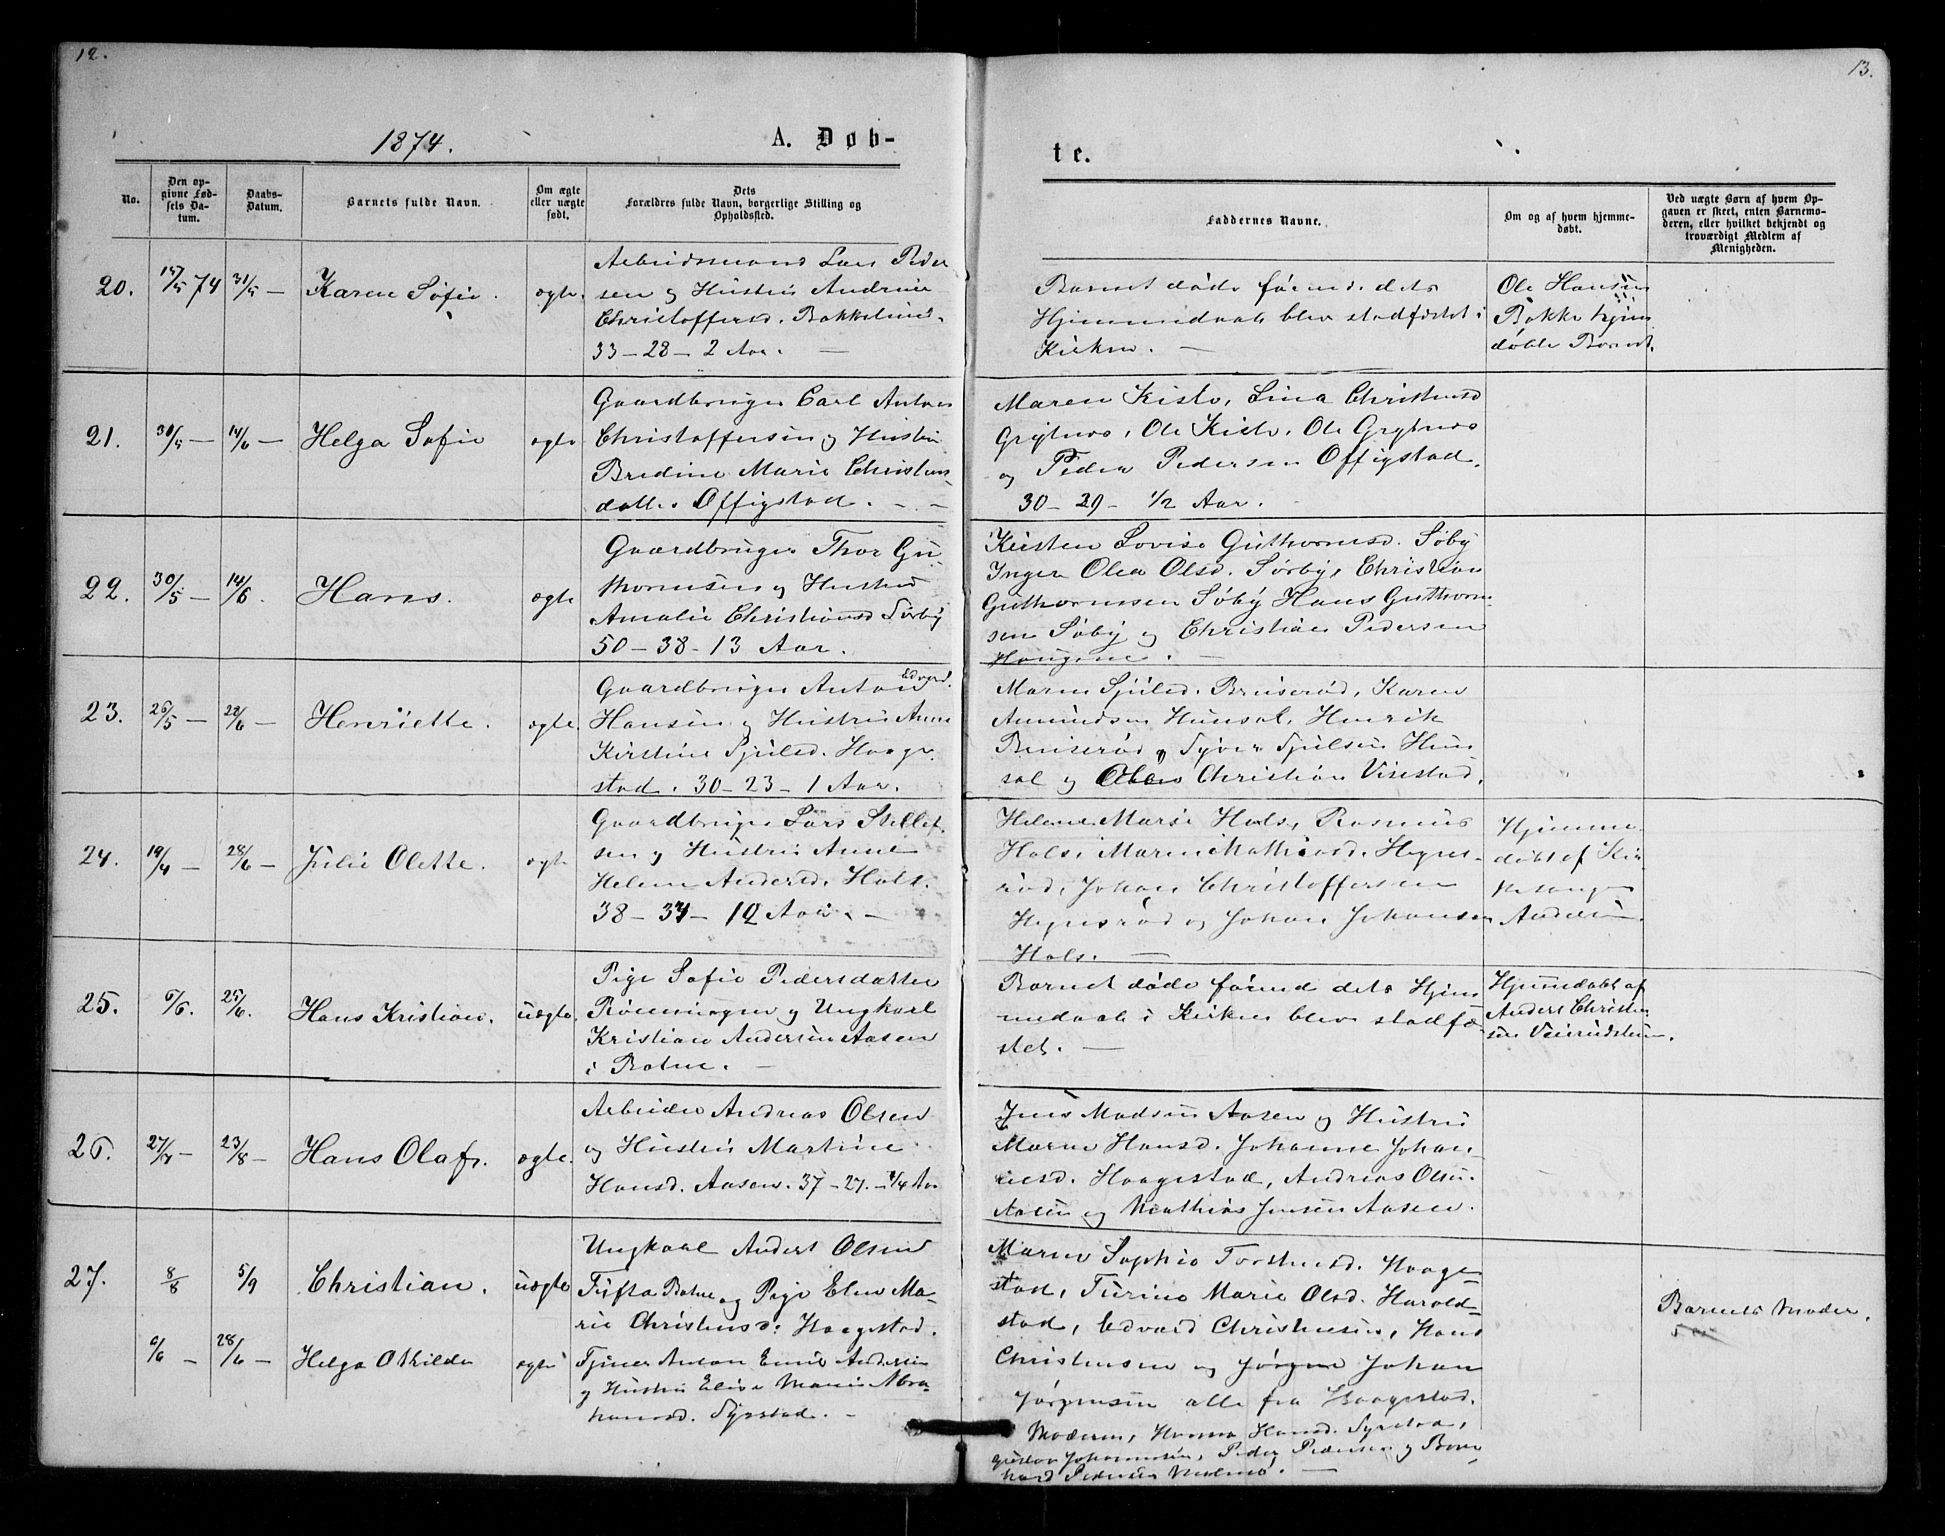 12.
13.
1874.
A. Døb-
te.
No.
Den op-
givne Fød-
sels Da-
tum.
Daabs-
Datum.
Barnets fulde Navn.
Om ægte
eller uægte
født.
Dets
Forældres fulde Navn, borgerlige Stilling og
Opholdssted.
Faddernes Navne.
Om og af hvem hjemme-
døbt.
Ved uægte Børn af hvem Op-
gaven er skeet, enten Barnemo-
deren, eller hvilket bekjendt og
troværdigt Medlem af
Menigheden.
20.
74
31/5 —
Karen Sofie.
ægte.
Arbeidsmand Lars Peder
sen og Hustru Andrine
Christoffersd. Bakkelund.
33 – 28 – 2 Aar. —
Barnet døde førend dets
Hjemmedaab blev stadfæstet i
Kirken. —
Ole Hansen
Bakke hjem
døbte Barnet.
21.
30/5 —
14/6 —
Helga Sofie
ægte
Gaardbruger Carl Anton
Christoffersen og Hustru
Bredine Marie Christens
datter Offigstad. —
Maren Kisto, Lina Christensd
Grytnes, Ole Ole Grytnes
og Peder Pedersen Offigstad.
30 – 29 – 1/2 Aar.
22.
30/5 —
14/6.
Hans.
ægte
Gaardbruger Thor Gu
thormsen og Hustru
Amalie Christiansd Sørby
50 – 38 – 13 Aar.
Kirsten Lovise Guthormsd. Søby
Inger Olea Olsd. Sørby, Christian
Guthormsen Søby Hans Guthorm
sen Søby og Christian Pedersen
Haugene. —
23.
26/5 —
28/6 —
Henriette.
ægte.
Gaardbruger Anton Edvard
Hansen og Hustru Anne
Kirstine Sjulsd. Haage
stad. 30 – 23 – 1 Aar.
Maren Sjulsd. Bruserød, Karen
Amundsen Hunsal, Henrik
Bruserød og Syver Sjulsen Hun
sal og Christian Vivestad.
24.
19/4 —
28/6 —
Julie Olette.
ægte
Gaardbruger Lars Stellef
sen og Hustru Anne
Helene Andersd. Hals.
38 – 37 – 12 Aar. —
Helene Marie Hals, Rasmus
Hals, Maren Mathisd.
rød, Johan Christoffersen
og Johan Johansen
Hals. —
Hjemme
døbt af Kir
kesanger
Andersen.
25.
6/6.
25/6.
Hans Kristian.
uægte.
Pige Sofie Pedersdatter
Rønningen og Ungkarl
Kristian Andersen Aasen
i Botne. —
Barnet døde førend dets Hjem
medaab i Kirken blev stadfæ
stet. —
Hjemmedøbt af
Anders Christen
sen
26.
27/7 —
23/8 —
Hans Olaf.
ægte.
Arbeider Andreas Olsen
og Hustru Martine
Hansd. Aasen. 37 – 27. – 1/4 Aar
Jens Madsen Aasen og Hustru
Maren Hansd. Johanne Johan
nesd. Haagestad, Andreas Olsen
Aasen og Mathias Jensen Aasen.
27.
8/8
5/9
Christian.
uægte
Ungkarl Anders Olsen
Tufta Botne og Pige Elen Ma-
rie Christensd: Haagestad.
Maren Sophie Torstensd. Haage-
stad, Turine Marie Olsd. Harald-
stad, Edvard Christensen, Hans
Christensen og Jørgen Johan
Jørgensen alle fra Haagestad.
Barnets Moder.
6/6 —
28/6 —
Helga Othilde
ægte
Tjener Anton Emil Andersen
og Hustru Elise Marie Abra
hamsd. Syrstad. —
Moderen, Hanna Hansd. Syrstad,
Gustav Johannesen, Peder Pedersen og Bern
hard Pedersen —